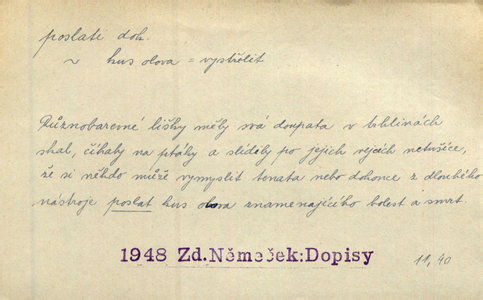 poslati dok.
~ kus olova = vystřelit
Různobarevné lišky měly svá doupata v trhlinách
skal, číhaly na ptáky a slídily po jejich vejcích netušíce,
že si někdo může vymyslit tenata nebo dokonce z dlouhého
nástroje poslat kus olova znamenajícího bolest a smrt.
1948 Zd.Němeček:Dopisy
11,40